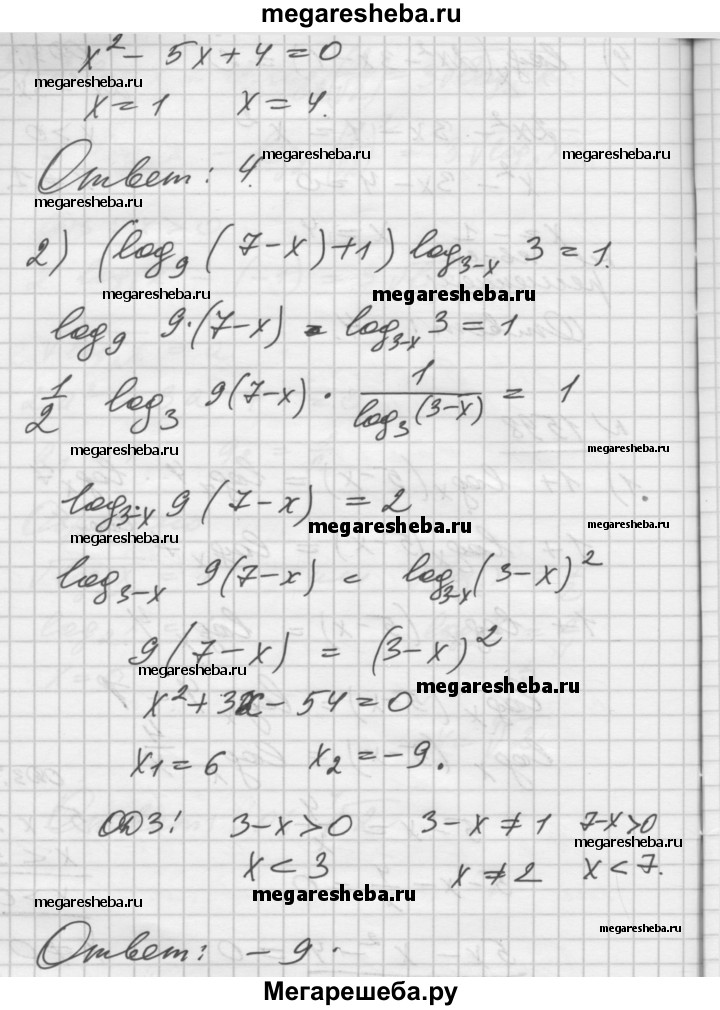 megaresheba.ru
x² - 5x + 4 = 0
megaresheba.ru
x = 1 x = 4.
megaresheba.ru megaresheba.ru
Ответ: 4.
megaresheba.ru
2) (log₉ (7-x)+1) log₃₋ₓ 3 = 1.
megaresheba.ru megaresheba.ru
log₉ 9·(7-x) · log₃₋ₓ 3 = 1
1/2 log₃ 9(7-x) · 1/log₃(3-x) = 1
megaresheba.ru megaresheba.ru
log₃₋ₓ 9(7-x) = 2
megaresheba.ru megaresheba.ru megaresheba.ru
log₃₋ₓ 9(7-x) = log₃₋ₓ(3-x)²
9(7-x) = (3-x)²
megaresheba.ru megaresheba.ru
x² + 3x - 54 = 0
x₁ = 6 x₂ = -9.
ОДЗ: 3-x>0 3-x≠1 7-x>0
megaresheba.ru
x < 3 x ≠ 2 x < 7.
megaresheba.ru megaresheba.ru
megaresheba.ru
Ответ: -9.
Мегарешеба.ру